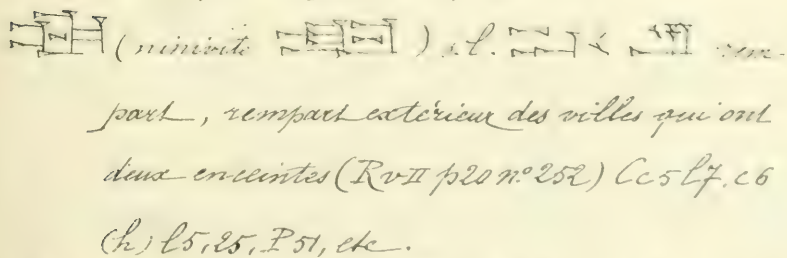 (ninivite ) s.l. rem-
part, rempart extérieur des villes qui ont
deux enceintes (R v II p 20 n° 252) C c 5 l 7, c 6
(h) l 5, 25, P 51, etc.